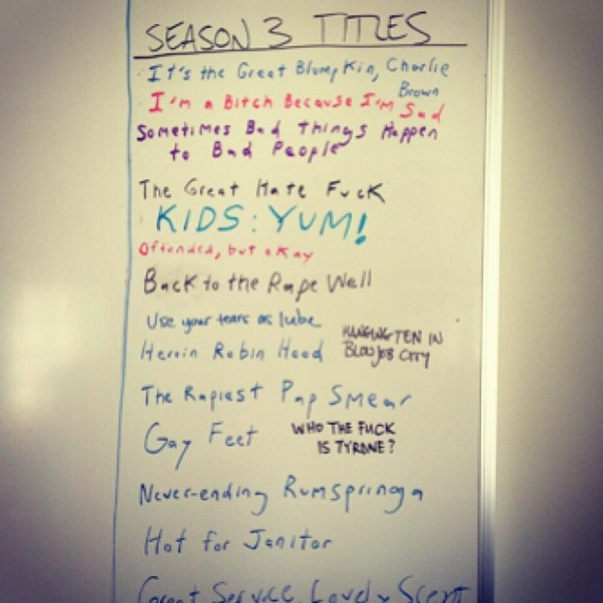 SEASON 3 TITLES
It's the Great Blumpkin, Charlie
Brown
I'm a Bitch Because I'm Sad
Sometimes Bad Things Happen
to Bad People
The Great Hate Fuck
KIDS: YUM!
Offended, but okay
Back to the Rape Well
Use your tears as lube
HANGING TEN IN
BLOWJOB CITY
Heroin Robin Hood
The Rapiest Pap Smear
Gay Feet
WHO THE FUCK
IS TYRONE?
Never-ending Rumspringa
Hot for Janitor
Great Service, Lovely Scent